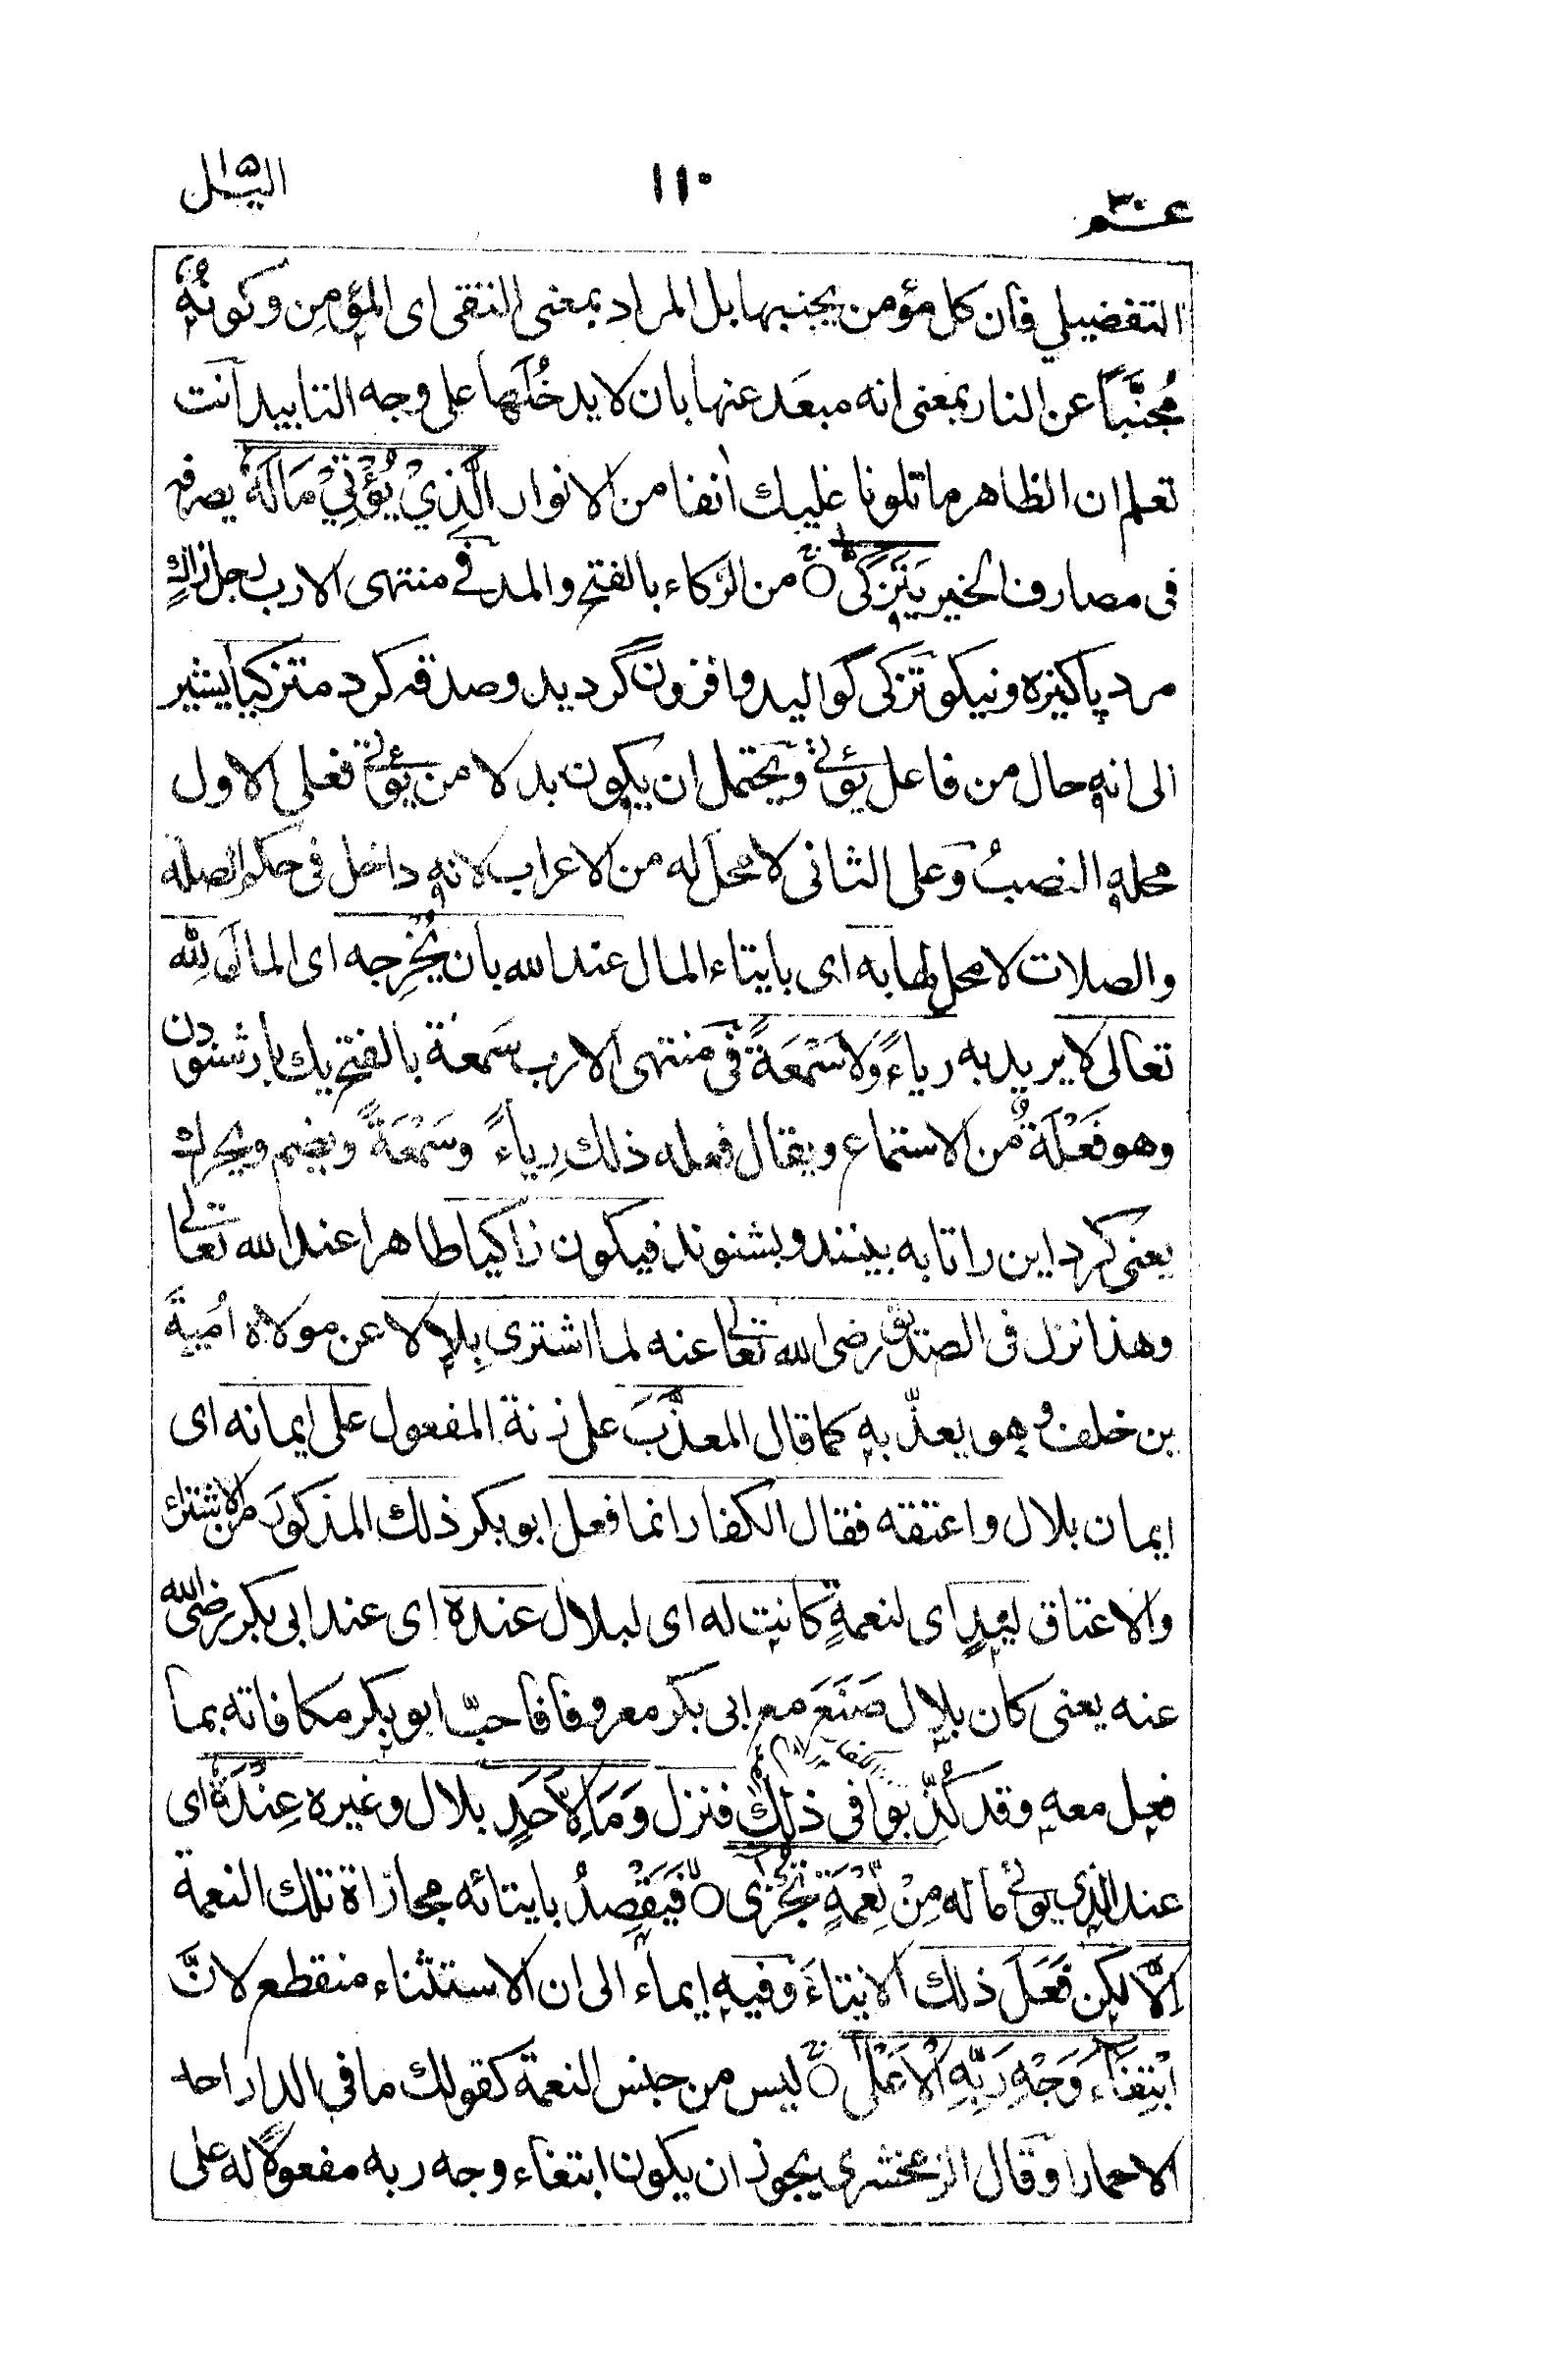 عـــم ٣٠
١١٠
اليل ١٥
التفضيلي فان كل مؤمن يجنبها بل المراد بمعنى التقى اى المؤمن وكونه
مُجنَّباً عن النار بمعنى انه مبعَد عنها بان لا يدخُلَها على وجه التابيد انت
تعلم ان الظاهر ما تلونا عليك اٰنفا من الانوار الَّذِيْ يُؤْتِيْ مَالَهٗ يصرفه
فى مصارف الخير يَتَزَكّٰى من الزكاء بالفتح والمد فے منتهى الارب رجل زاكٍ
مرد پاكيزه ونيكو تزكى گواليد وافزون گرديد وصدقه كرد متزكيا يشير
الى انه حال من فاعل يؤتے ويحتمل ان يكون بدلا من يؤتے فعلى الاول
محله النصبُ وعلى الثانى لا محل له من الاعراب لانه داخل فى حكم الصلة
والصلات لا محل لها به اى بايتاء المال عند الله بان يُخْرِجه اى المالَ لِلّٰه
تعالى لا يريد به رياءً وَلا سَمْعَةً فى منتهى الارب سَمعة بالفتح يك بار شنودن
وهو فَعْلَةٌ من الاستماع ويقال فعله ذلك رِياءً وسَمْعَةً ويضم ويحرك
يعنى كرد اين را تا به بينند وبشنوند فيكون زاكيا طاهرا عند الله تعالے
وهذا نزل فى الصديق رضى الله تعالے عنه لما اشترى بِلالا عن مولاه اُميةَ
بن خلف وهو يعذّب به كما قال المعذَّبَ على زنة المفعول على ايمانه اى
ايمان بلال واعتقه فقال الكفار انما فعل ابو بكر ذلك المذكورَ من الاشتراء
والاعتاق ليَدٍ اى لنعمةٍ كانت له اى لبلال عنده اى عند ابى بكر رضى الله
عنه يعنى كان بلال صَنَعَ مع ابى بكر معروفا فاحبّ ابو بكر مكافاته بما
فعل معه وقد كُذِّبوا فى ذلك فنزل وَمَا لِاَحَدٍ بلال وغيره عِنْدَهٗ اى
عند الذى يؤتے ماله مِنْ نِّعْمَةٍ تُجْزٰٓى فَيَقْصِدُ بايتائه مجازاة تلك النعمة
اِلَّا لكن فَعَلَ ذلك الايتاءَ وفيه ايماء الى ان الاستثناء منقطع لانَّ
ابْتِغَآءَ وَجْهِ رَبِّهِ الْاَعْلٰى ليس من جنس النعمة كقولك ما فى الدار احد
الا حمارا وقال الزمخشرى يجوز ان يكون ابتغاء وجه ربه مفعولًا له على